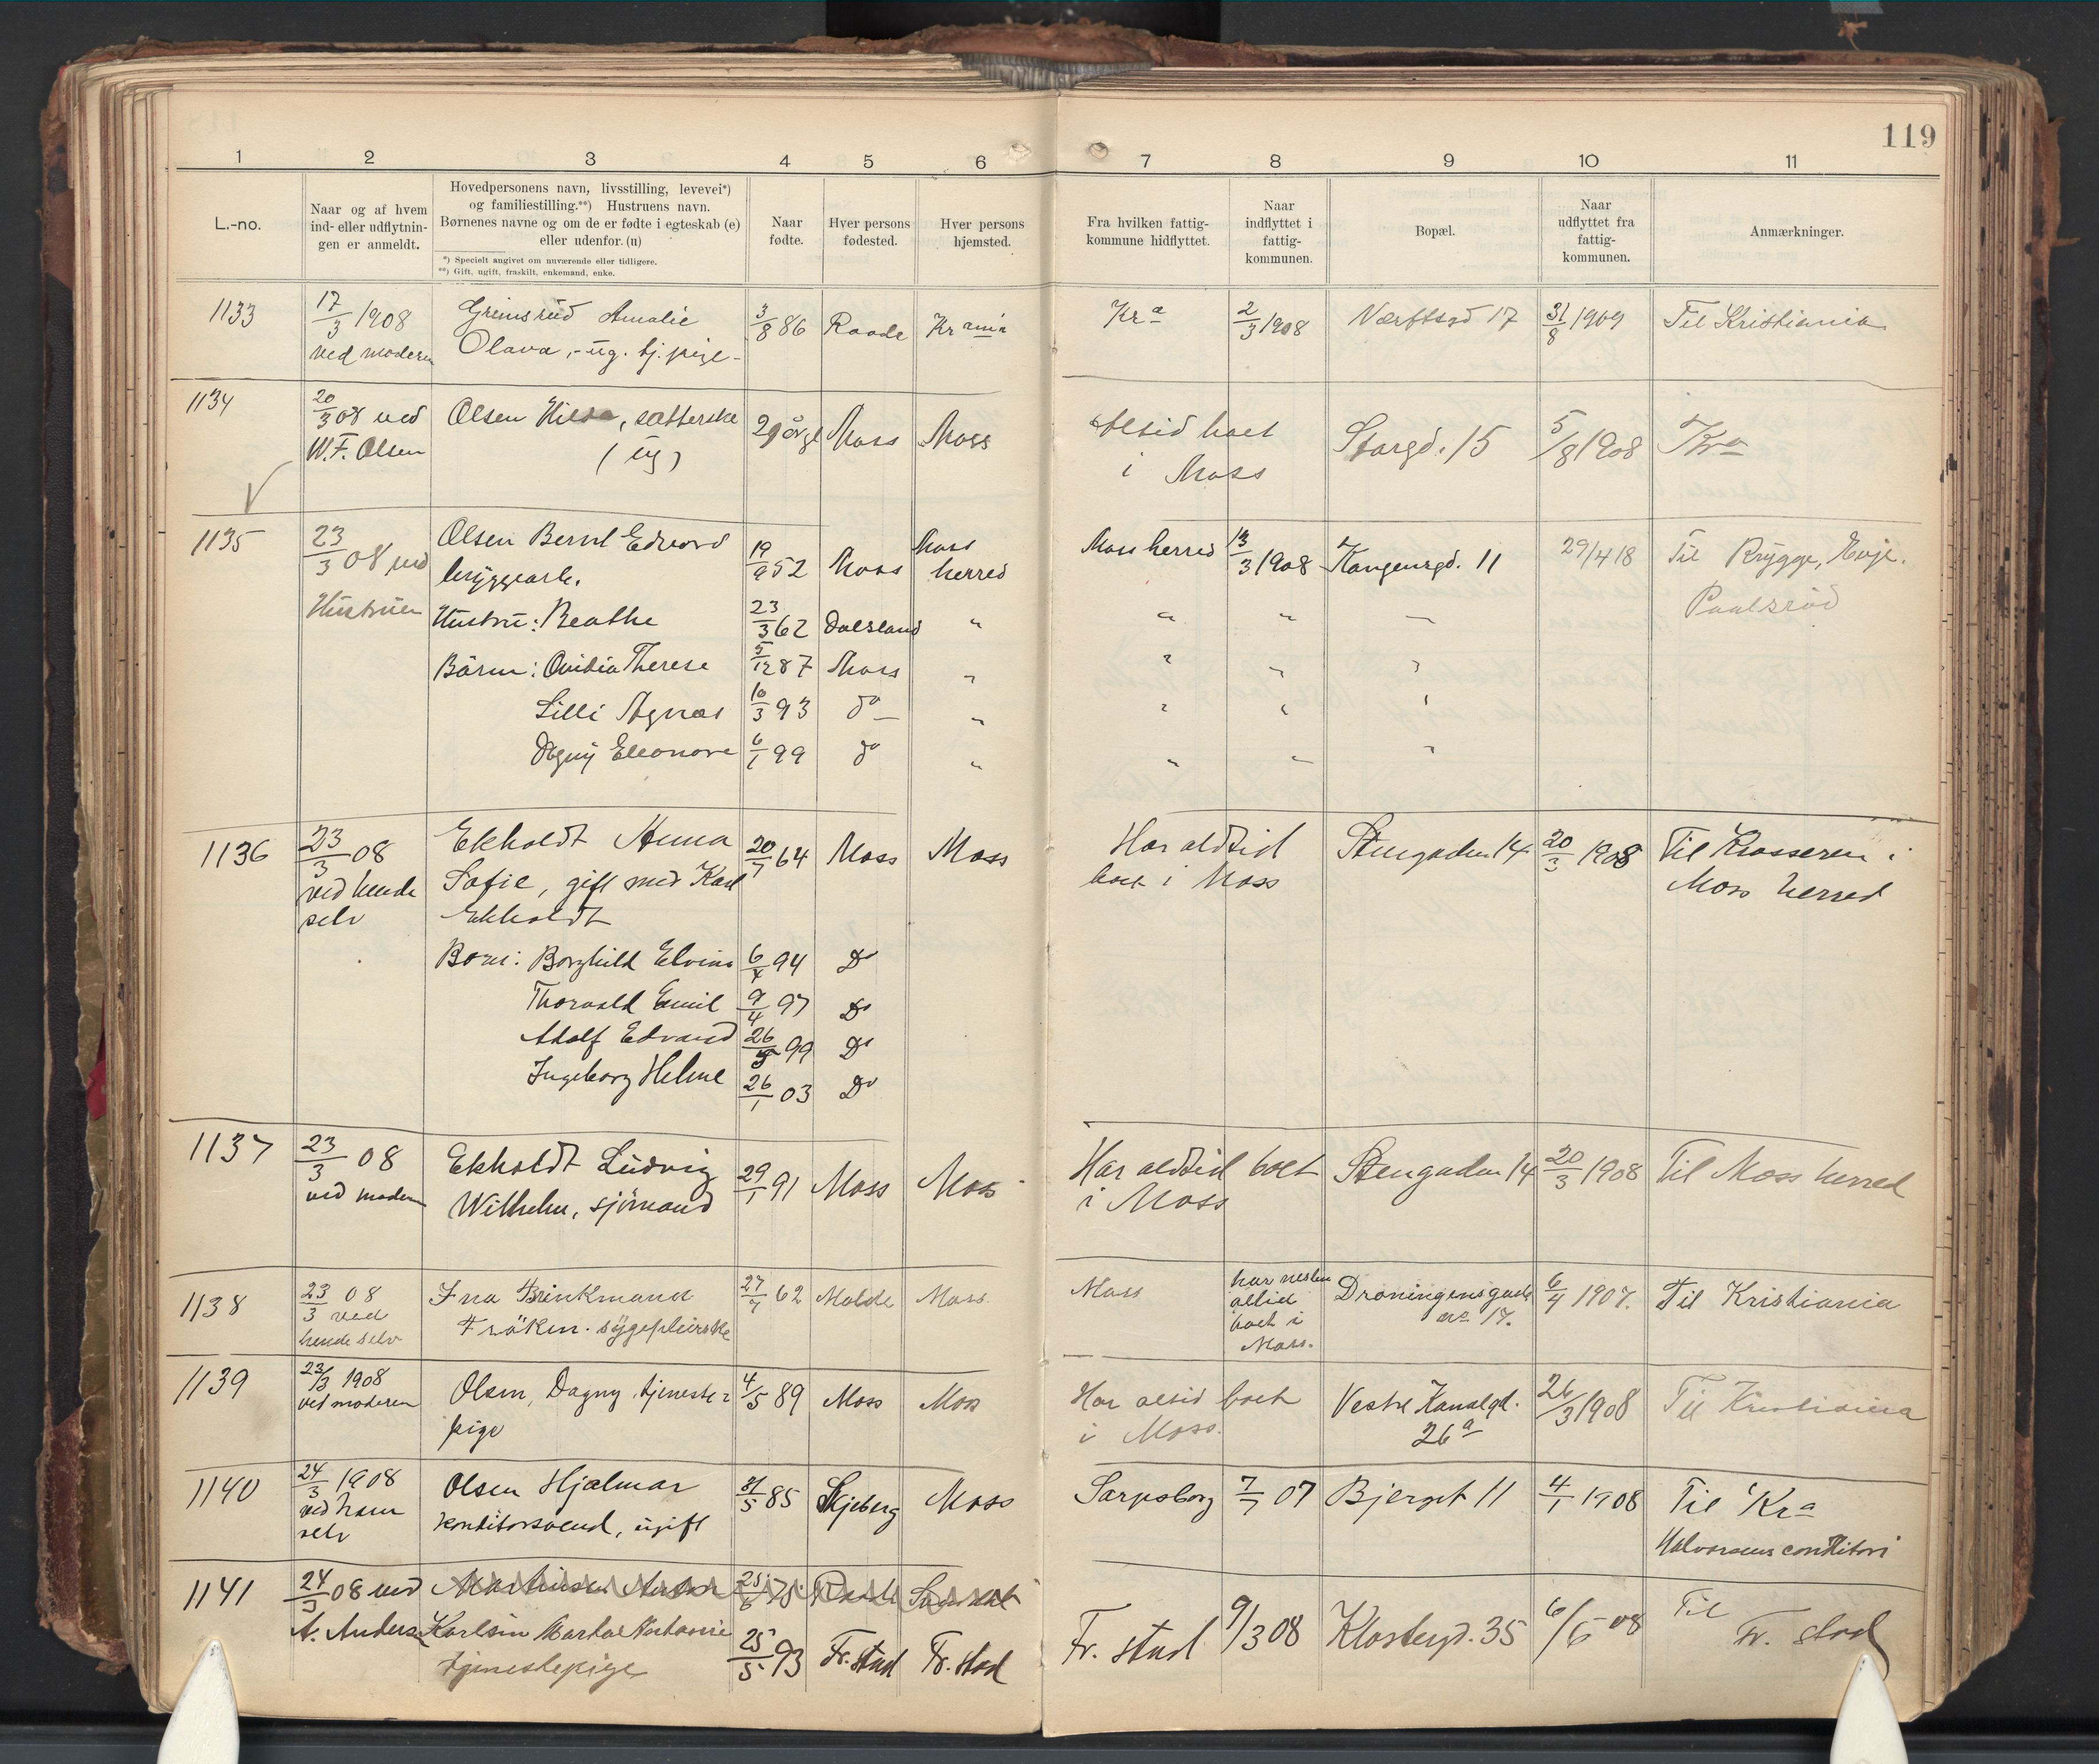 119
1 2 3 4 5 6 7 8 9 10 11
L.-no.
Naar og af hvem
ind- eller udflytnin-
gen er anmeldt.
Hovedpersonens navn, livsstilling, levevei*)
og familiestilling.**) Hustruens navn.
Børnenes navne og om de er fødte i egteskab (e)
eller udenfor. (u)
*) Specielt angivet om nuværende eller tidligere.
**) Gift, ugift, fraskilt, enkemand, enke.
Naar
fødte.
Hver persons
fødested.
Hver persons
hjemsted.
Fra hvilken fattig-
kommune hidflyttet.
Naar
indflyttet i
fattig-
kommunen.
Bopæl.
Naar
udflyttet fra
fattig-
kommunen.
Anmærkninger.
1133 17/3 1908 Grimsrud Amalie 3/8 86 Raade Kr ania Kra 2/3 1908 Værftsgd 17 31/8 1909 Til Kristiania
ved moderen Olava, - ug. tj. pige -
1134 20/3 08 ved Olsen, satterske 29 år gl Moss Moss altid boet Storgd. 15 5/8 1908 Kra
W. F. Olsen (ug) i Moss
1135 23/3 08 ved Olsen Bernt Edvard 19/9 52 Moss Moss herred Moss herred 13/3 1908 Kongensgd. 11 29/4 18 Til Rygge, Evje.
Hustruen bryggearb. Paulsrød
Hustru: Beathe 23/3 62 Dalsland " " " —
Børn: Ovidia Therese 5/12 87 Moss " " " "
Lilli Agnes 10/3 93 do — " " " "
Dagny Eleonore 6/1 99 do " " " "
1136 23/3 08 Ekholdt Anna 20/7 64 Moss Moss Har altid Stengaden 14 20/3 1908 Til Krosseren i
ved hende Sofie, gift med Karl boet i Moss Moss herred
selv Ekholdt
Børn: Borghild Elvina 6/4 94 Do
Thorvald Emil 9/4 97 Do
Adolf Edvard 26/5 99 Do
Ingeborg Helene 26/1 03 Do
1137 23/3 08 Ekholdt Ludvig 29/1 91 Moss Moss Har altid boet Stengaden 14 20/3 1908 Til Moss herred
ved moderen Wilhelm, sjömand i Moss
1138 23/3 08 Ina Brinkmand 27/7 62 Molde Moss. Moss har nesten Droningensgade 6/4 1907. Til Kristiania
ved Fröken. sygepleirske altid no 17.
hende selv boet i
Moss.
1139 23/3 1908 Olsen, Dagny, tjeneste- 4/5 89 Moss Moss Har altid boet Vestre Kanalgd. 26/3 1908 Til Kristiania
ved moderen pige i Moss. 26a
1140 24/3 1908 Olsen Hjalmar 31/5 85 Skjeberg Moss Sarpsborg 7/7 07 Bjerget 11 4/1 1908 Til Kra
ved ham konditorsvend, ugift Halvorsens conditori
selv
1141 24/3 08 ved Martinsen
A. Andersen Karlsen Marta Antonie 25/5 93 Fr.stad Fr.stad Fr. stad 9/3 08 Klostergd. 35 6/5 08 Til
tjenestepige Fr. stad